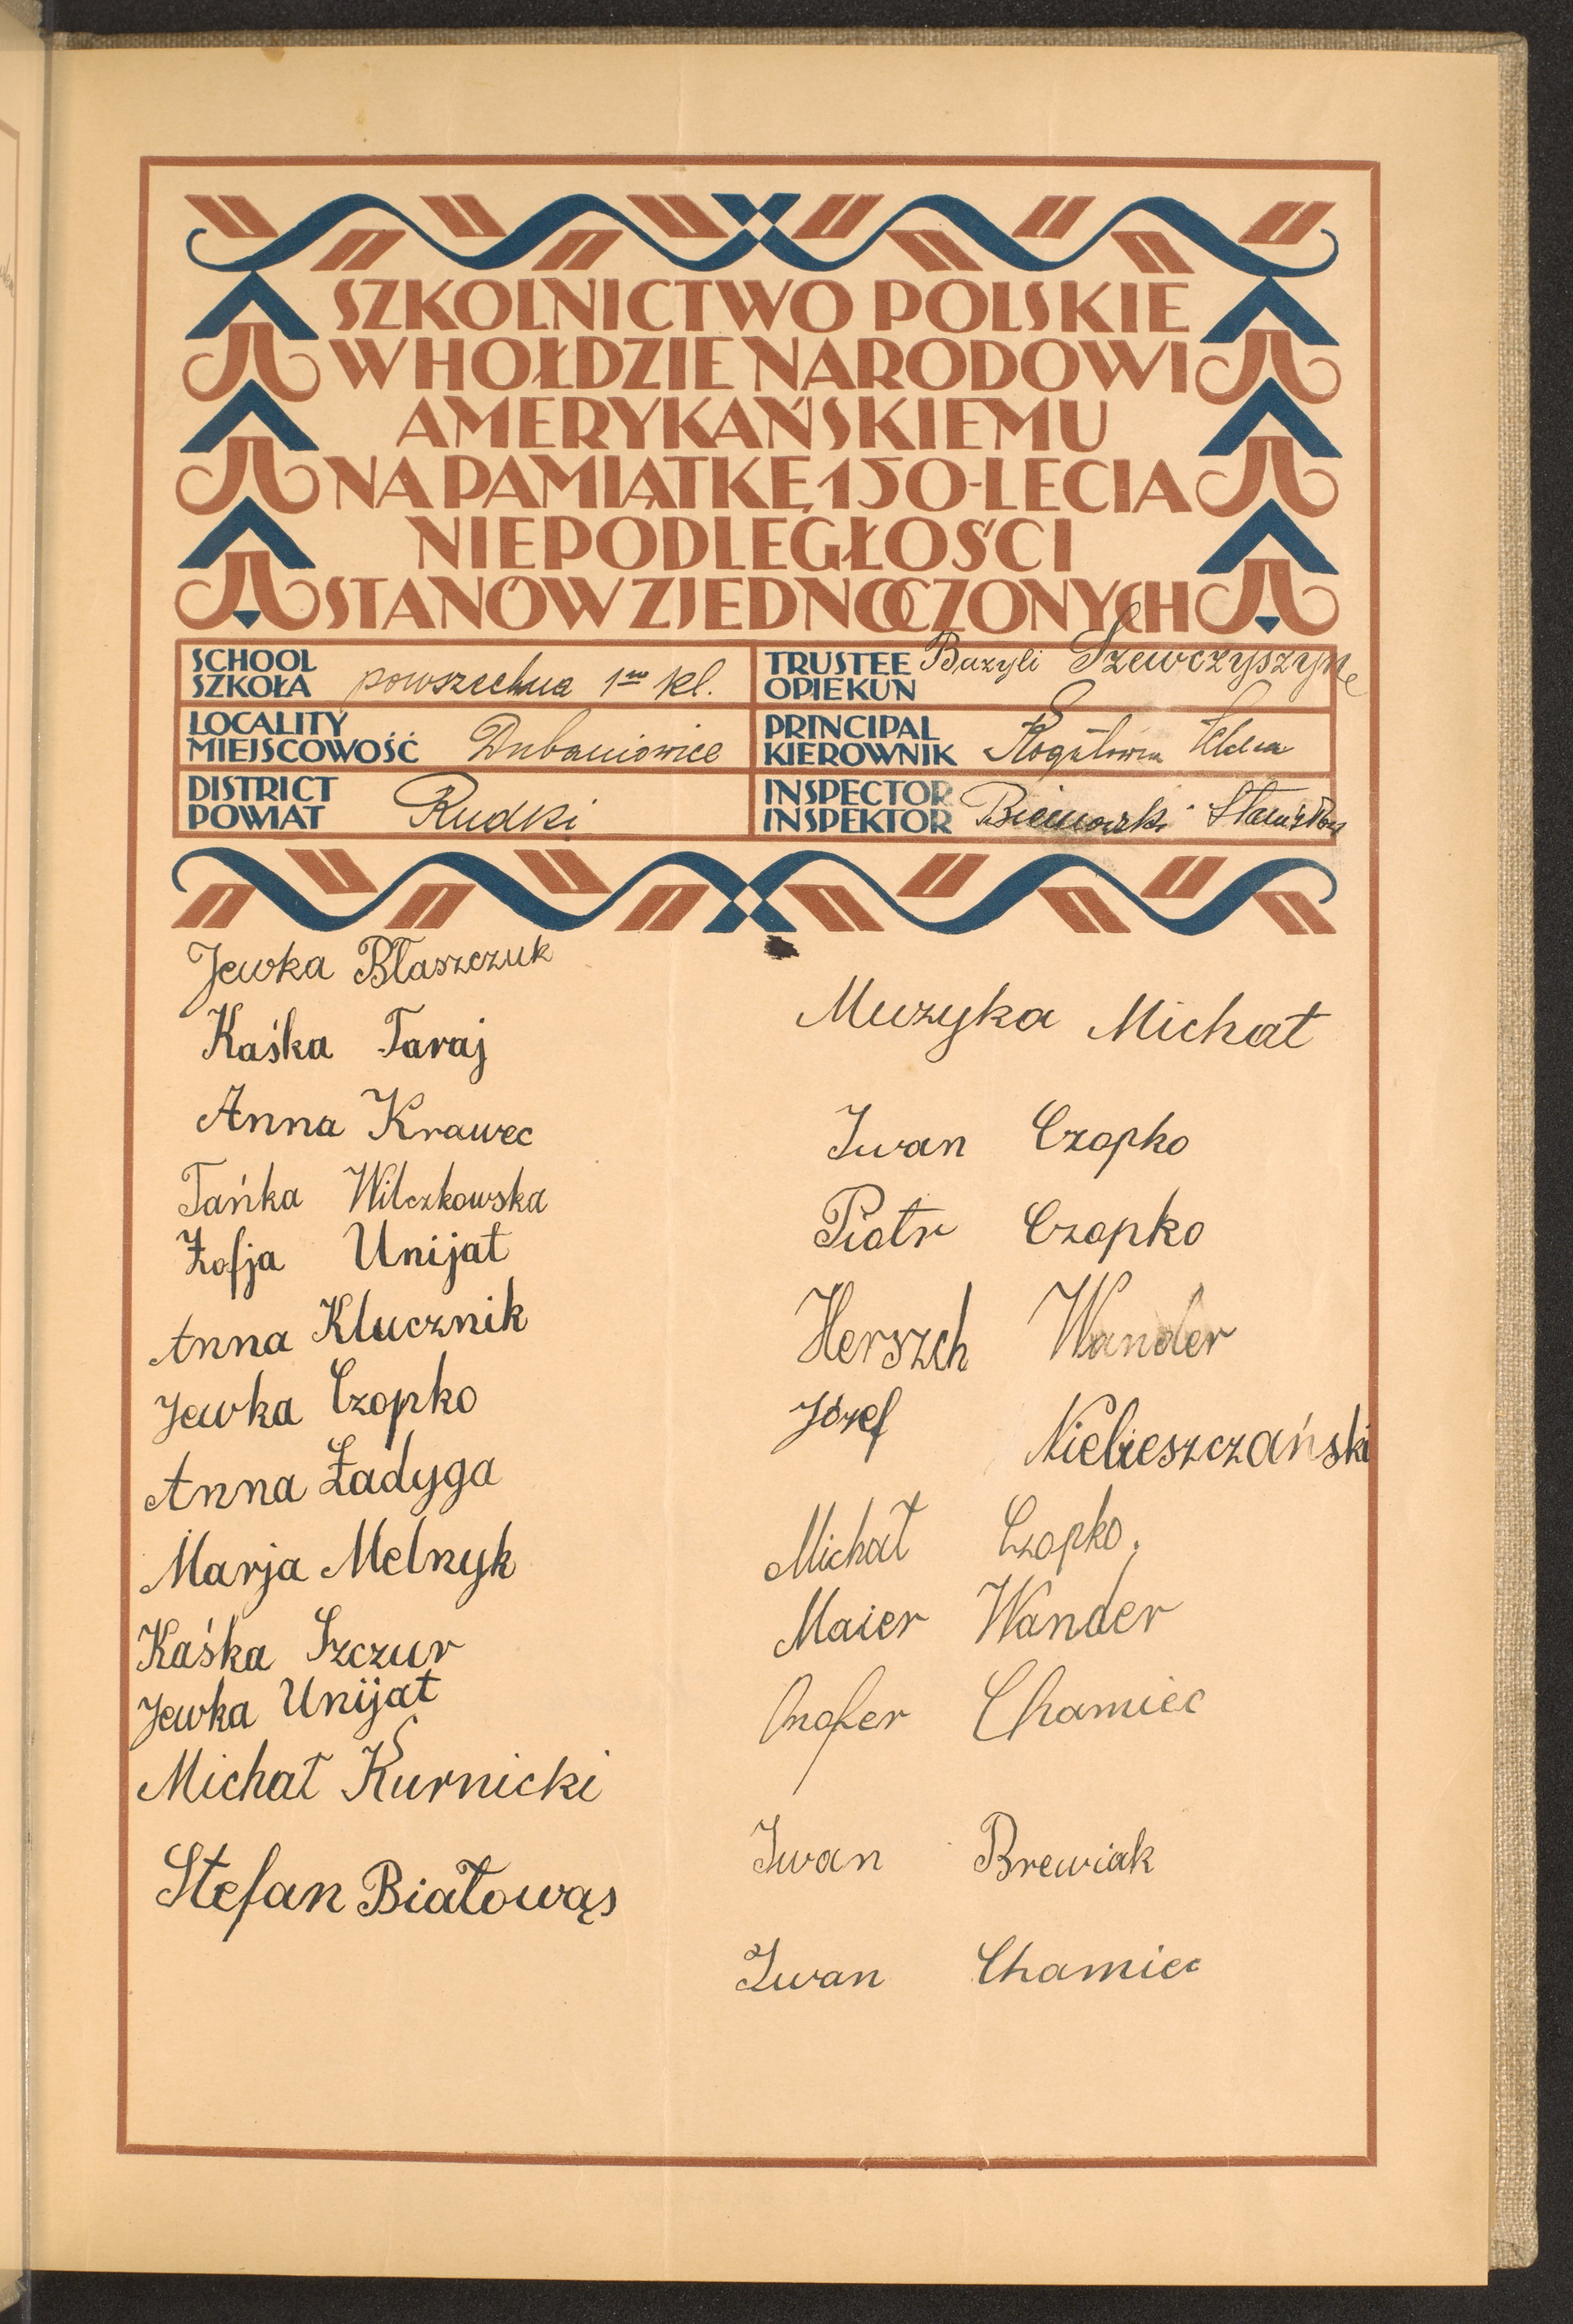 SZKOLNICTWO POLSKIE
W HOŁDZIE NARODOWI
AMERYKAŃSKIEMU
NA PAMIĄTKĘ 150-LECIA
NIEPODLEGŁOŚCI
STANÓW ZJEDNOCZONYCH
SCHOOL
SZKOŁA powszechna 1no kl.
TRUSTEE Bazyli Szewczyszyn
OPIEKUN
LOCALITY
MIEJSCOWOŚĆ Dubaniowice
PRINCIPAL
KIEROWNIK
DISTRICT
POWIAT Rudki
INSPECTOR
INSPEKTOR
Jewka Błaszczuk
Kaśka Taraj
Anna Krawec
Tańka Wilczkowska
Zofja Unijat
Anna Klucznik
Jewka Czopko
Anna Zadyga
Marja Melnyk
Kaśka Szczur
Jewka Unijat
Michał Kurnicki
Stefan Białowąs
Muzyka Michał
Iwan Czopko
Piotr Czopko
Herszch Wander
Józef Niebieszczański
Michał Czopko.
Maier Wander
Onofer Chamiec
Iwan Brewiak
Iwan Chamiec